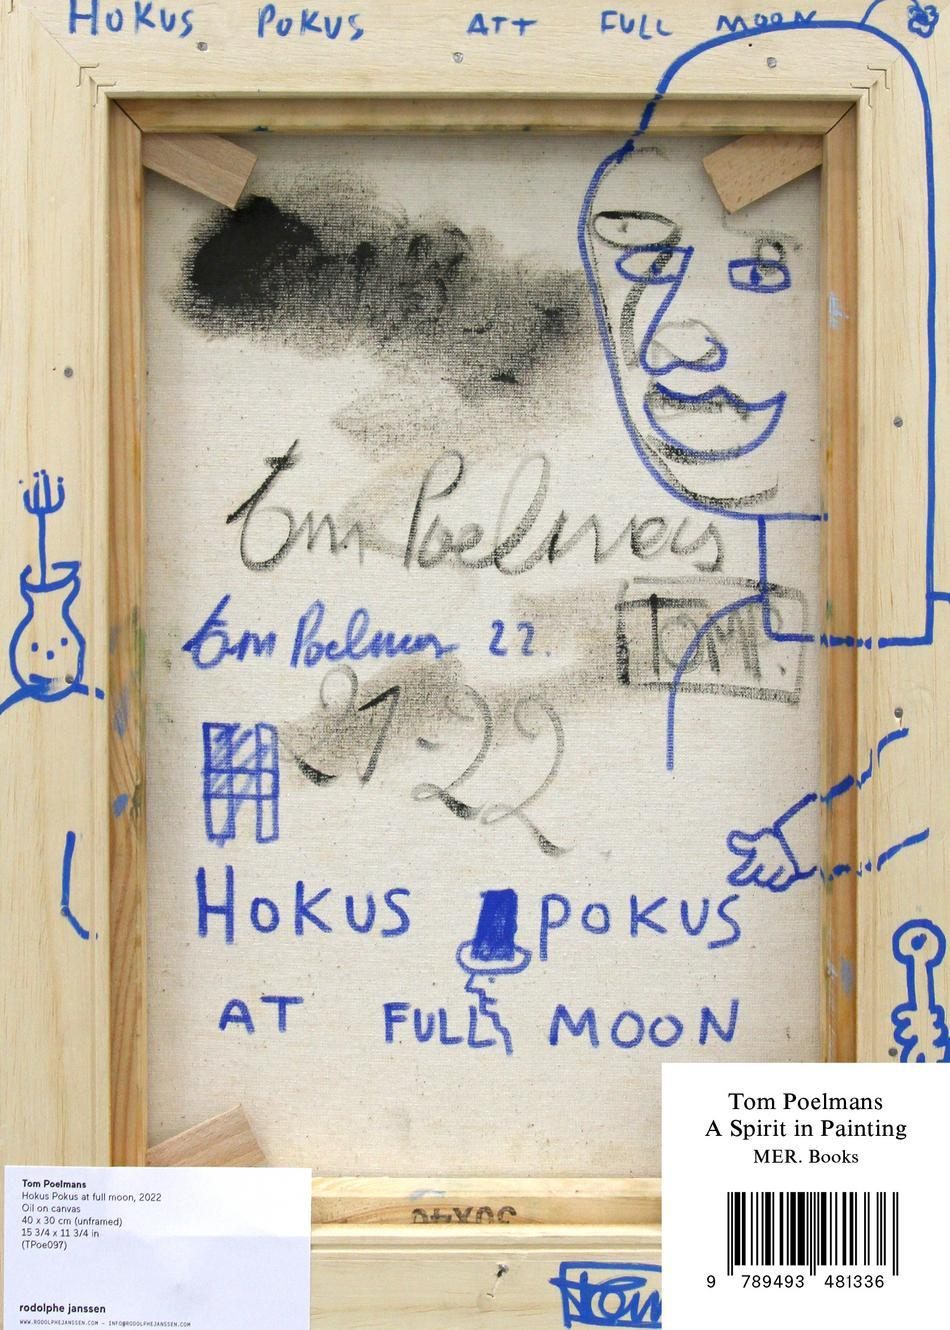 HOKUS POKUS ATT FULL MOON
tom Poelmans
TOMP.
tom Poelmans 22.
21-22
HOKUS POKUS
AT FULL MOON
Tom Poelmans
A Spirit in Painting
MER. Books
9 789493 481336
Tom Poelmans
Hokus Pokus at full moon, 2022
Oil on canvas
40 x 30 cm (unframed)
15 3/4 x 11 3/4 in
(TPoe097)
rodolphe janssen
WWW.RODOLPHEJANSSEN.COM – INFO@RODOLPHEJANSSEN.COM
tom